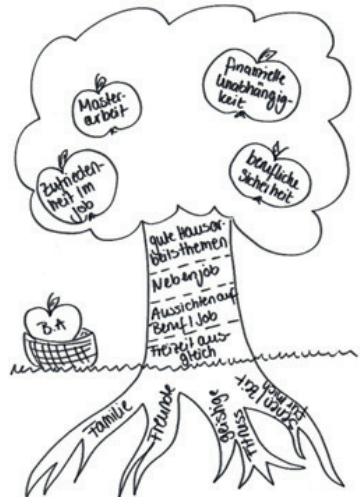 finanzielle
Unabhängig-
keit
Master-
arbeit
Zufrieden-
heit im
Job
berufliche
Sicherheit
gute Hausar-
beitsthemen
Nebenjob
Aussichten auf
Beruf/Job
Freizeitaus-
gleich
B.A
Familie
Freunde
geistige
Fitness
für mich